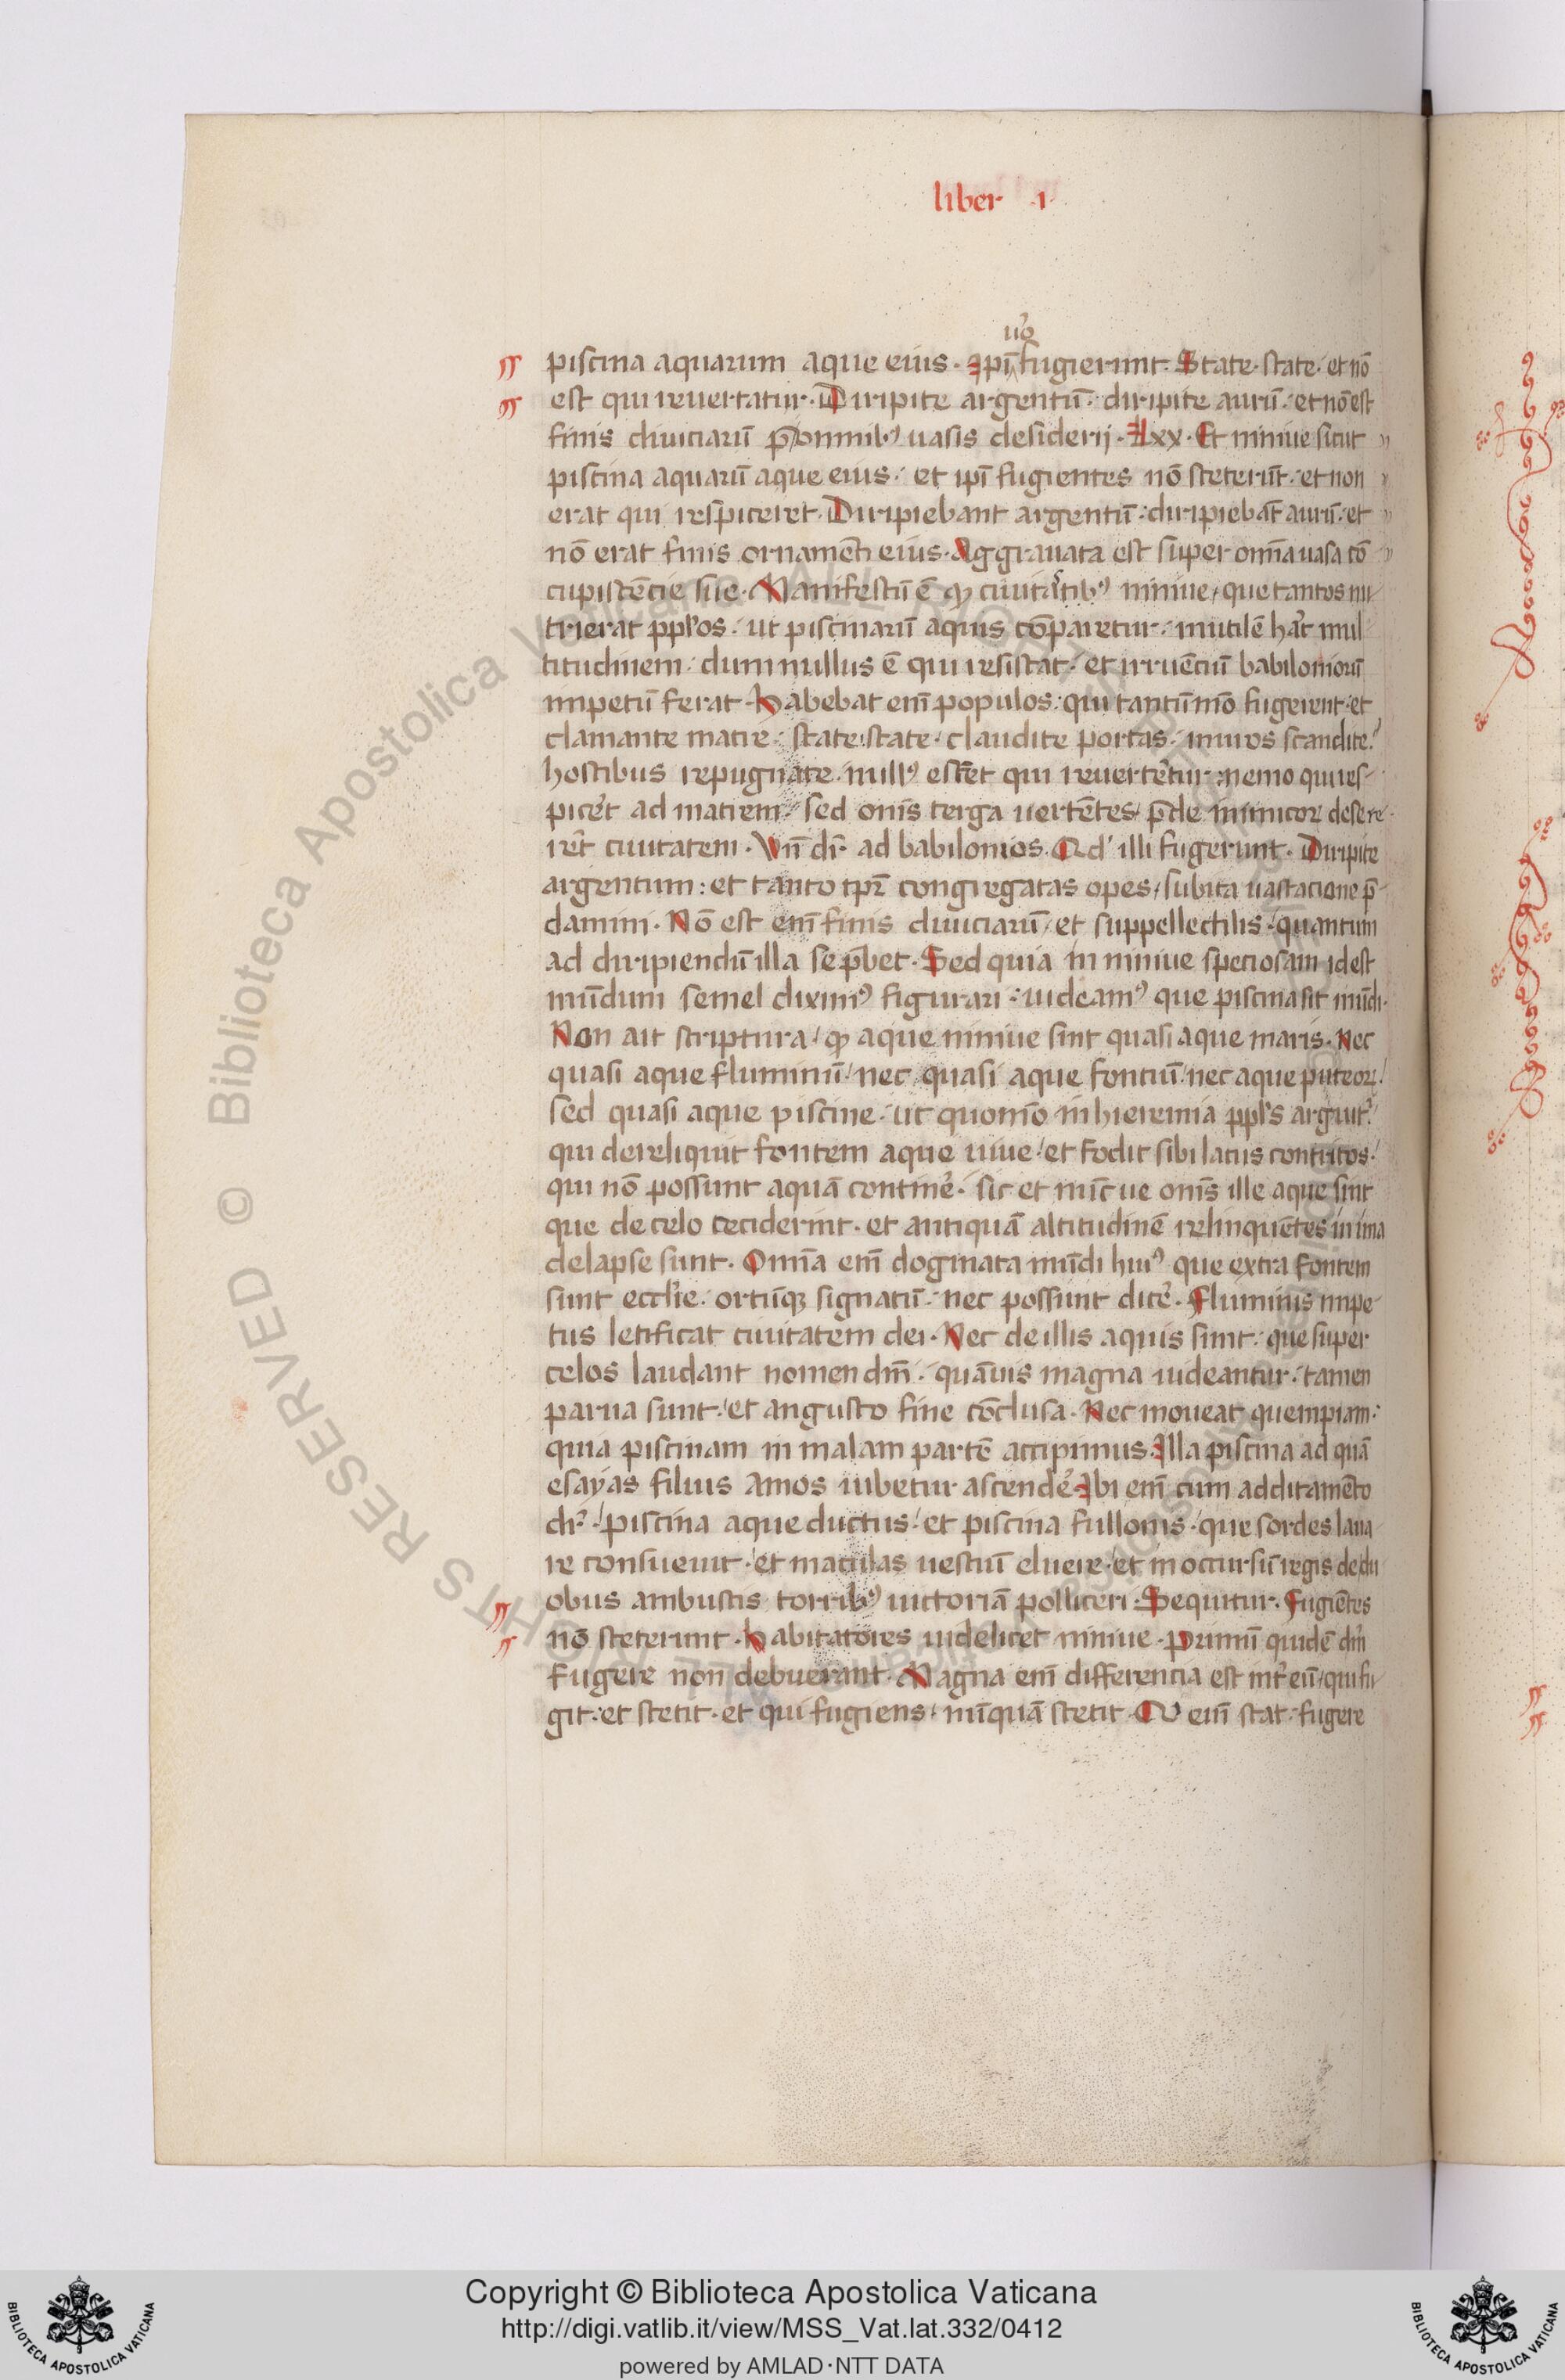 liber .i.
uo
piscina aquarum aque eius. Ipi fugierunt. State. state. et nō
est qui reuertatur. Diripite argentū. diripite aurū. et nō est
finis diuiciarū p̄ omnibꝰ uasis desiderij. lxx. Et niniue sicut
piscina aquarū aque eius. et ipi fugientes nō steterūt. et non
erat qui respiceret. Diripiebant argentū. diripiebāt aurū. et
nō erat finis ornamēti eius. Aggrauata est super omīa uasa cō
cupiscēcie sue. Manifestū ē ꝙ ciuitatibꝰ niniue, que tantos nu
trierat ppl'os. ut piscinarū aquis cōparetur. inutilē hat mul
titudinem. dum nullus ē qui resistat. et irruēciū babiloniorū
impetū ferat. Habebat enī populos. qui tantūmō fugerent. et
clamante matre. state state. claudite portas. muros scandite.
hostibus repugnate. nullꝰ esset qui reuertetur. nemo qui res
picet ad matrem. sed onīs terga uertētes, p̄de inimicoꝝ desere
rēt ciuitatem. Vn̄ dr̄ ad babilonios. Qd' illi fugerunt. Diripite
argentum: et tanto tp̄r congregatas opes, subita uastacione p̄
damini. Nō est enī finis diuiciarū, et suppellectilis. quantum
ad diripiendū illa se p̄bet. Sed quia in niniue speciosam idest
mūdum semel diximꝰ figurari. uideamꝰ que piscina sit mūdi.
Non ait scriptura, ꝙ aque niniue sint quasi aque maris. Nec
quasi aque fluminū, nec quasi aque fontiū, nec aque puteoꝝ.
sed quasi aque piscine. ut quomō in hieremia ppl's arguit
qui dereliquit fontem aque uiue, et fodit sibi lacus contritos.
qui nō possunt aquā continē. sic et nūc ue onīs ille aque sint
que de celo ceciderint. et antiquā altitudinē relinquētes in ima
delapse sunt. Omīa enī dogmata mūdi huiꝰ que extra fontem
sunt eccl'ie. ortūqꝫ signatū. nec possunt dicē. Fluminis impe
tus letificat ciuitatem dei. Nec de illis aquis sunt. que super
celos laudant nomen dn̄i. quāuis magna uideantur. tamen
parua sunt. et angusto fine cōclusa. Nec moueat quempiam.
quia piscinam in malam partē accipimus. Illa piscina ad quā
esayas filius Amos iubetur ascendē. Ibi enī cum additamēto
dr̄. piscina aque ductus. et piscina fullonis. que sordes laua
re consueuit. et maculas uestiū eluere. et in occursū regis de du
obus ambustis torribꝰ uictoriā polliceri. Sequitur. Fugiētes
nō steterunt. Habitatores uidelicet niniue. Primū quidē dn̄i
fugere non debuerant. Magna enī differencia est int' eū, qui fu
git. et stetit. et qui fugiens, nūquā stetit. Qui enī stat. fugere
Copyright © Biblioteca Apostolica Vaticana
http://digi.vatlib.it/view/MSS_Vat.lat.332/0412
powered by AMLAD·NTT DATA